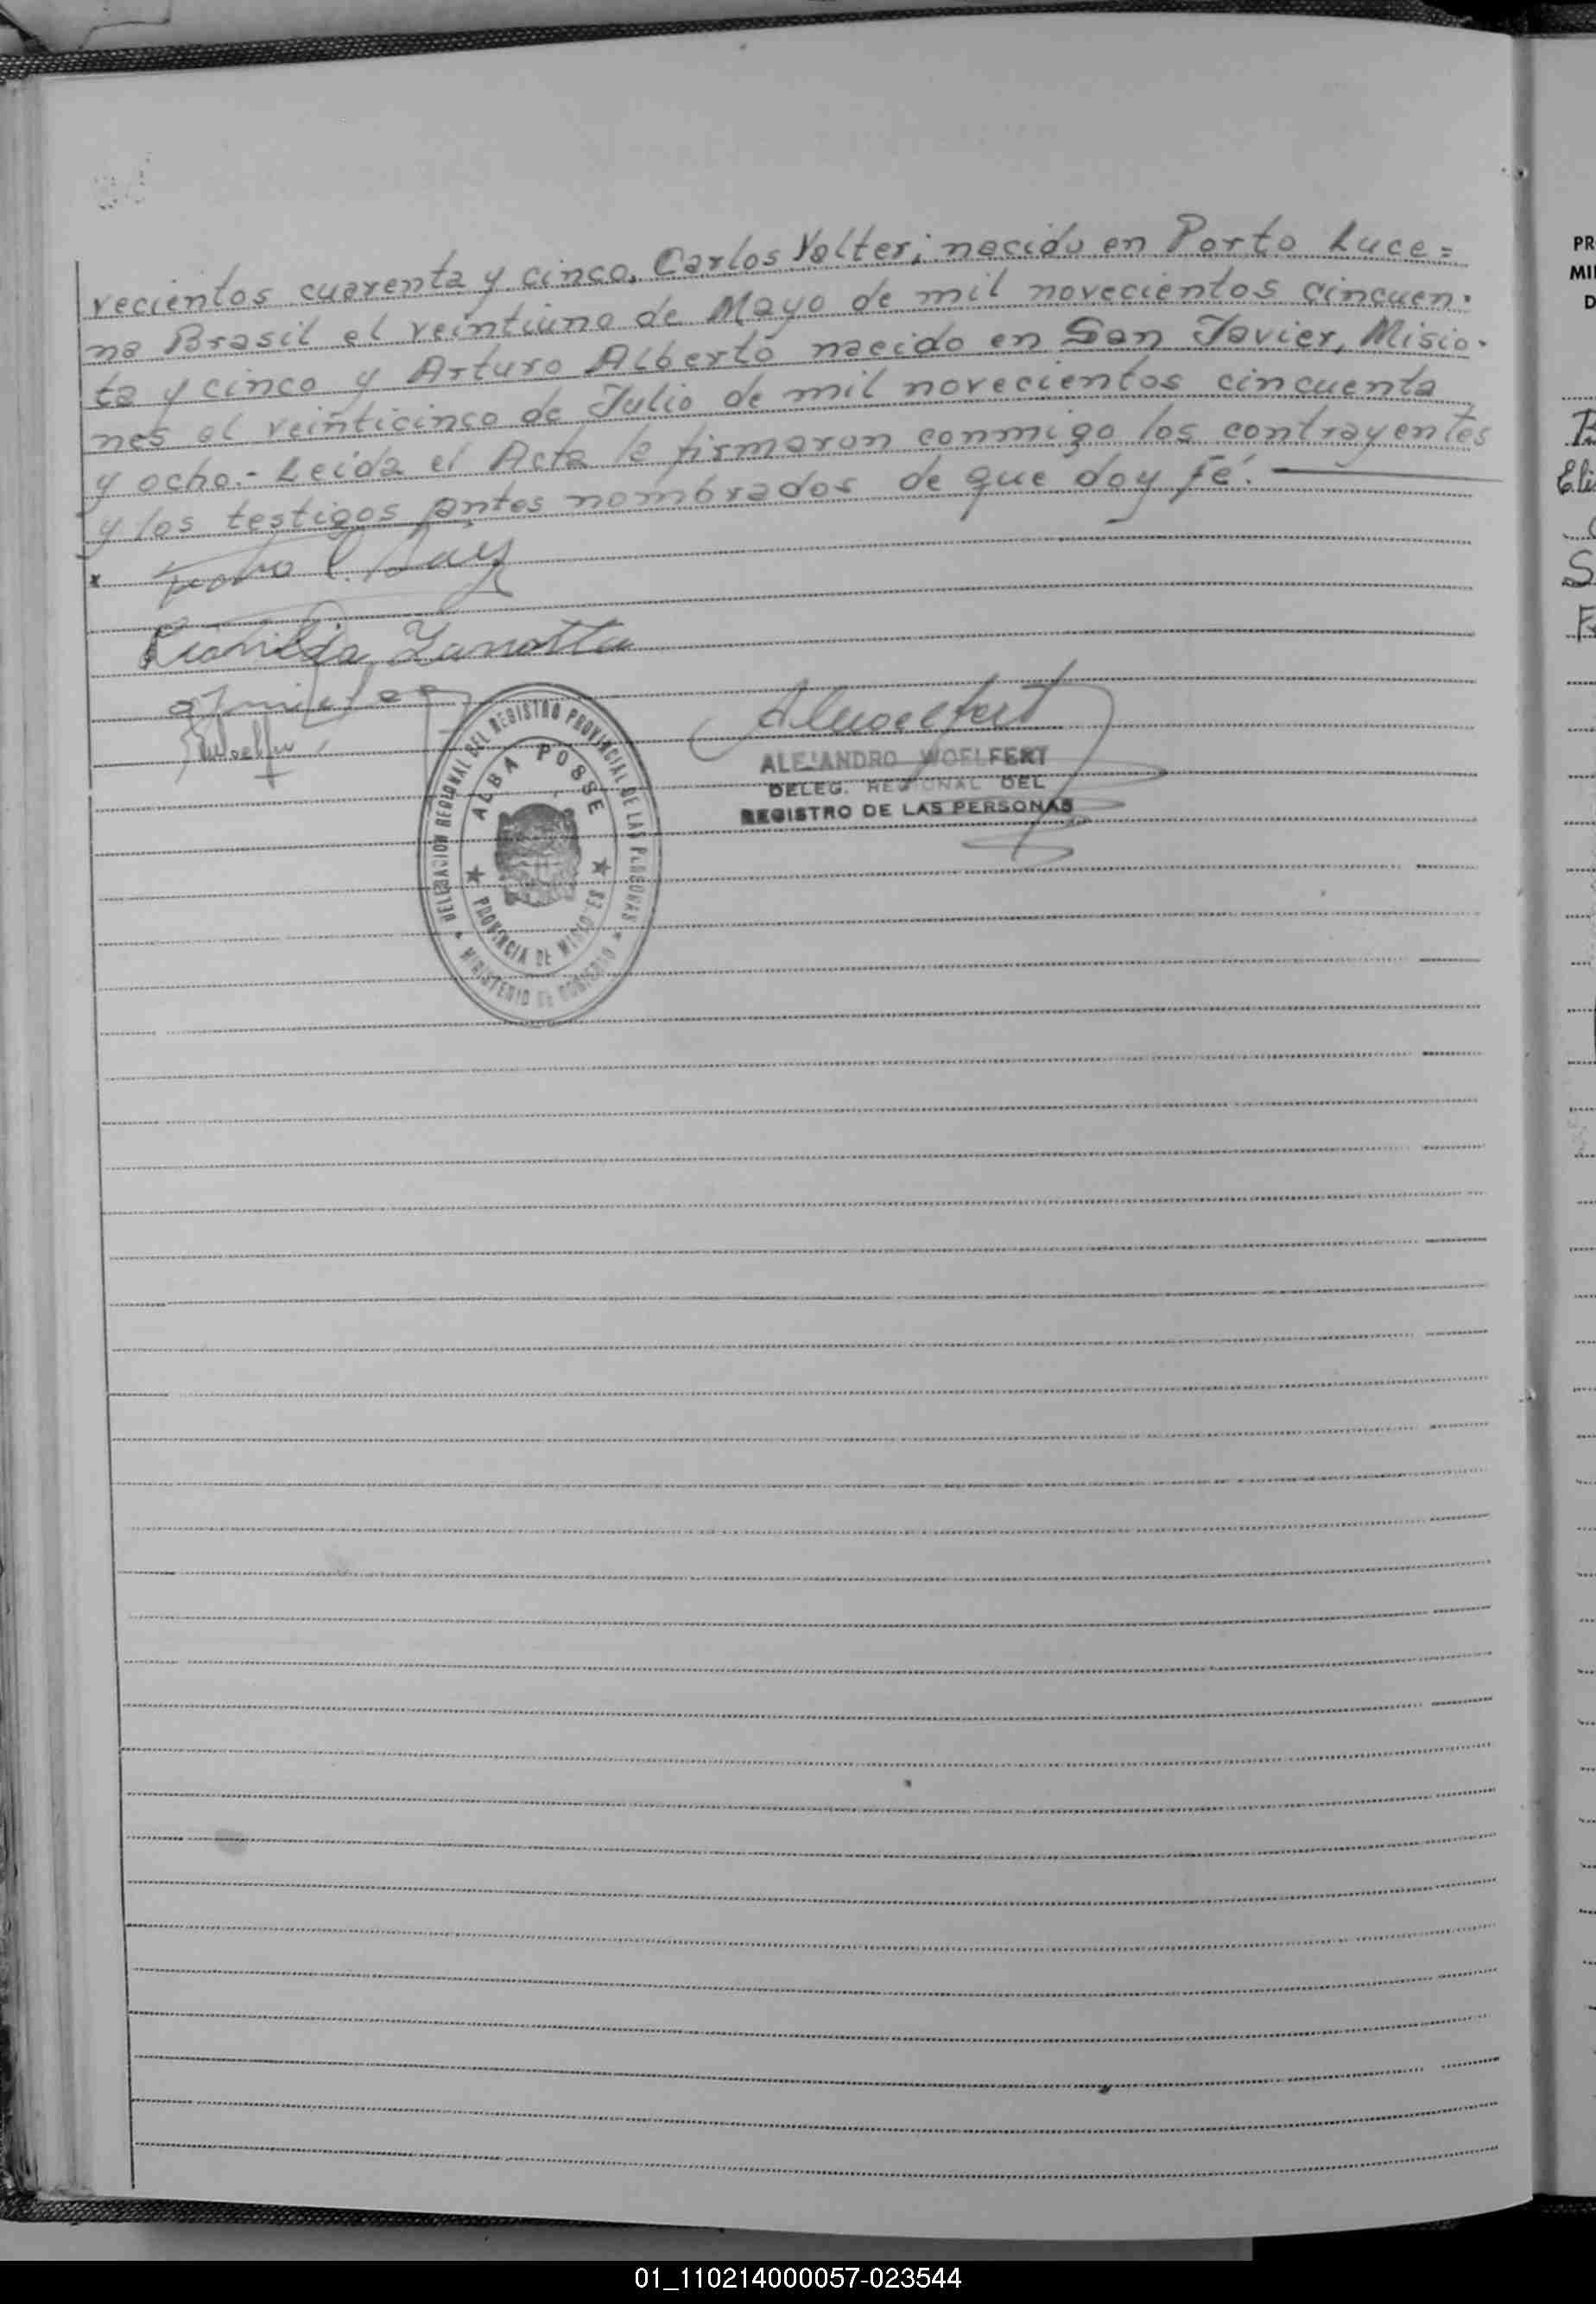 vecientos cuarenta y cinco, Carlos Valter; nacido en Porto Luce=
na Brasil el veintiuno de Mayo de mil novecientos cincuen-
ta y cinco y Arturo Alberto nacido en San Javier, Misio-
nes el veinticinco de Julio de mil novecientos cincuenta
y ocho.- Leida el Acta la firmaron conmigo los contrayentes
y los testigos antes nombrados de que doy fé.
x Pedro C.
Zanotta
Alwoelfert
ALEJANDRO WOELFERT
DELEG. REGIONAL DEL
REGISTRO DE LAS PERSONAS
DELEGACION REGIONAL DEL REGISTRO PROVINCIAL DE LAS PERSONAS
ALBA POSSE
PROVINCIA DE MISIONES
MINISTERIO DE GOBIERNO
PR
MI
D
Eli
S
01_110214000057-023544